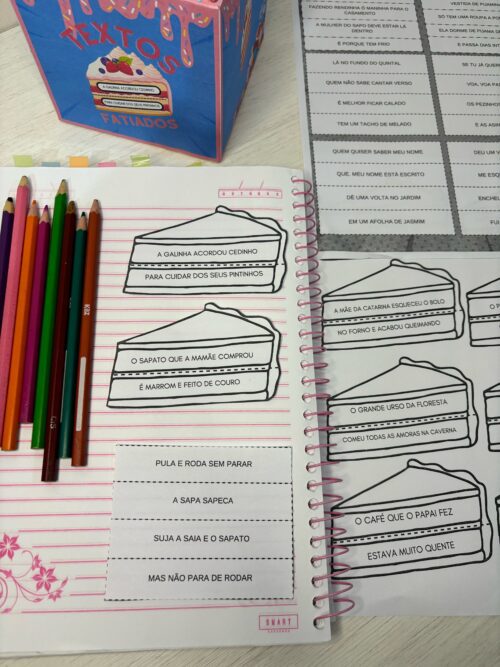 TEXTOS
A GALINHA ACORDOU CEDINHO
PARA CUIDAR DOS SEUS PINTINHOS
FATIADOS
FAZENDO RENDINHA O MANINHA PARA O
CASAMENTO
A MULHER DO SAPO DEVE ESTAR LÁ
DENTRO
É PORQUE TEM FRIO
LÁ NO FUNDO DO QUINTAL
QUEM NÃO SABE CANTAR VERSO
É MELHOR FICAR CALADO
TEM UM TACHO DE MELADO
QUEM QUISER SABER MEU NOME
QUE, MEU NOME ESTÁ ESCRITO
DÊ UMA VOLTA NO JARDIM
EM UM AFOLHA DE JASMIM
VESTIDA DE
SÓ TEM UMA ROUPA
ELA DORME DE
E PASSA DIAS
SE TU JÁ
VOA, VOA
OS PEZINHOS
E AS
DEU UM
ME
ENCHEL
FUI
OUTUBRO
A GALINHA ACORDOU CEDINHO
PARA CUIDAR DOS SEUS PINTINHOS
O SAPATO QUE A MAMÃE COMPROU
É MARROM E FEITO DE COURO
PULA E RODA SEM PARAR
A SAPA SAPECA
SUJA A SAIA E O SAPATO
MAS NÃO PARA DE RODAR
SMART
A MÃE DA CATARINA ESQUECEU O BOLO
NO FORNO E ACABOU QUEIMANDO
O GRANDE URSO DA FLORESTA
COMEU TODAS AS AMORAS NA CAVERNA
O CAFÉ QUE O PAPAI FEZ
ESTAVA MUITO QUENTE